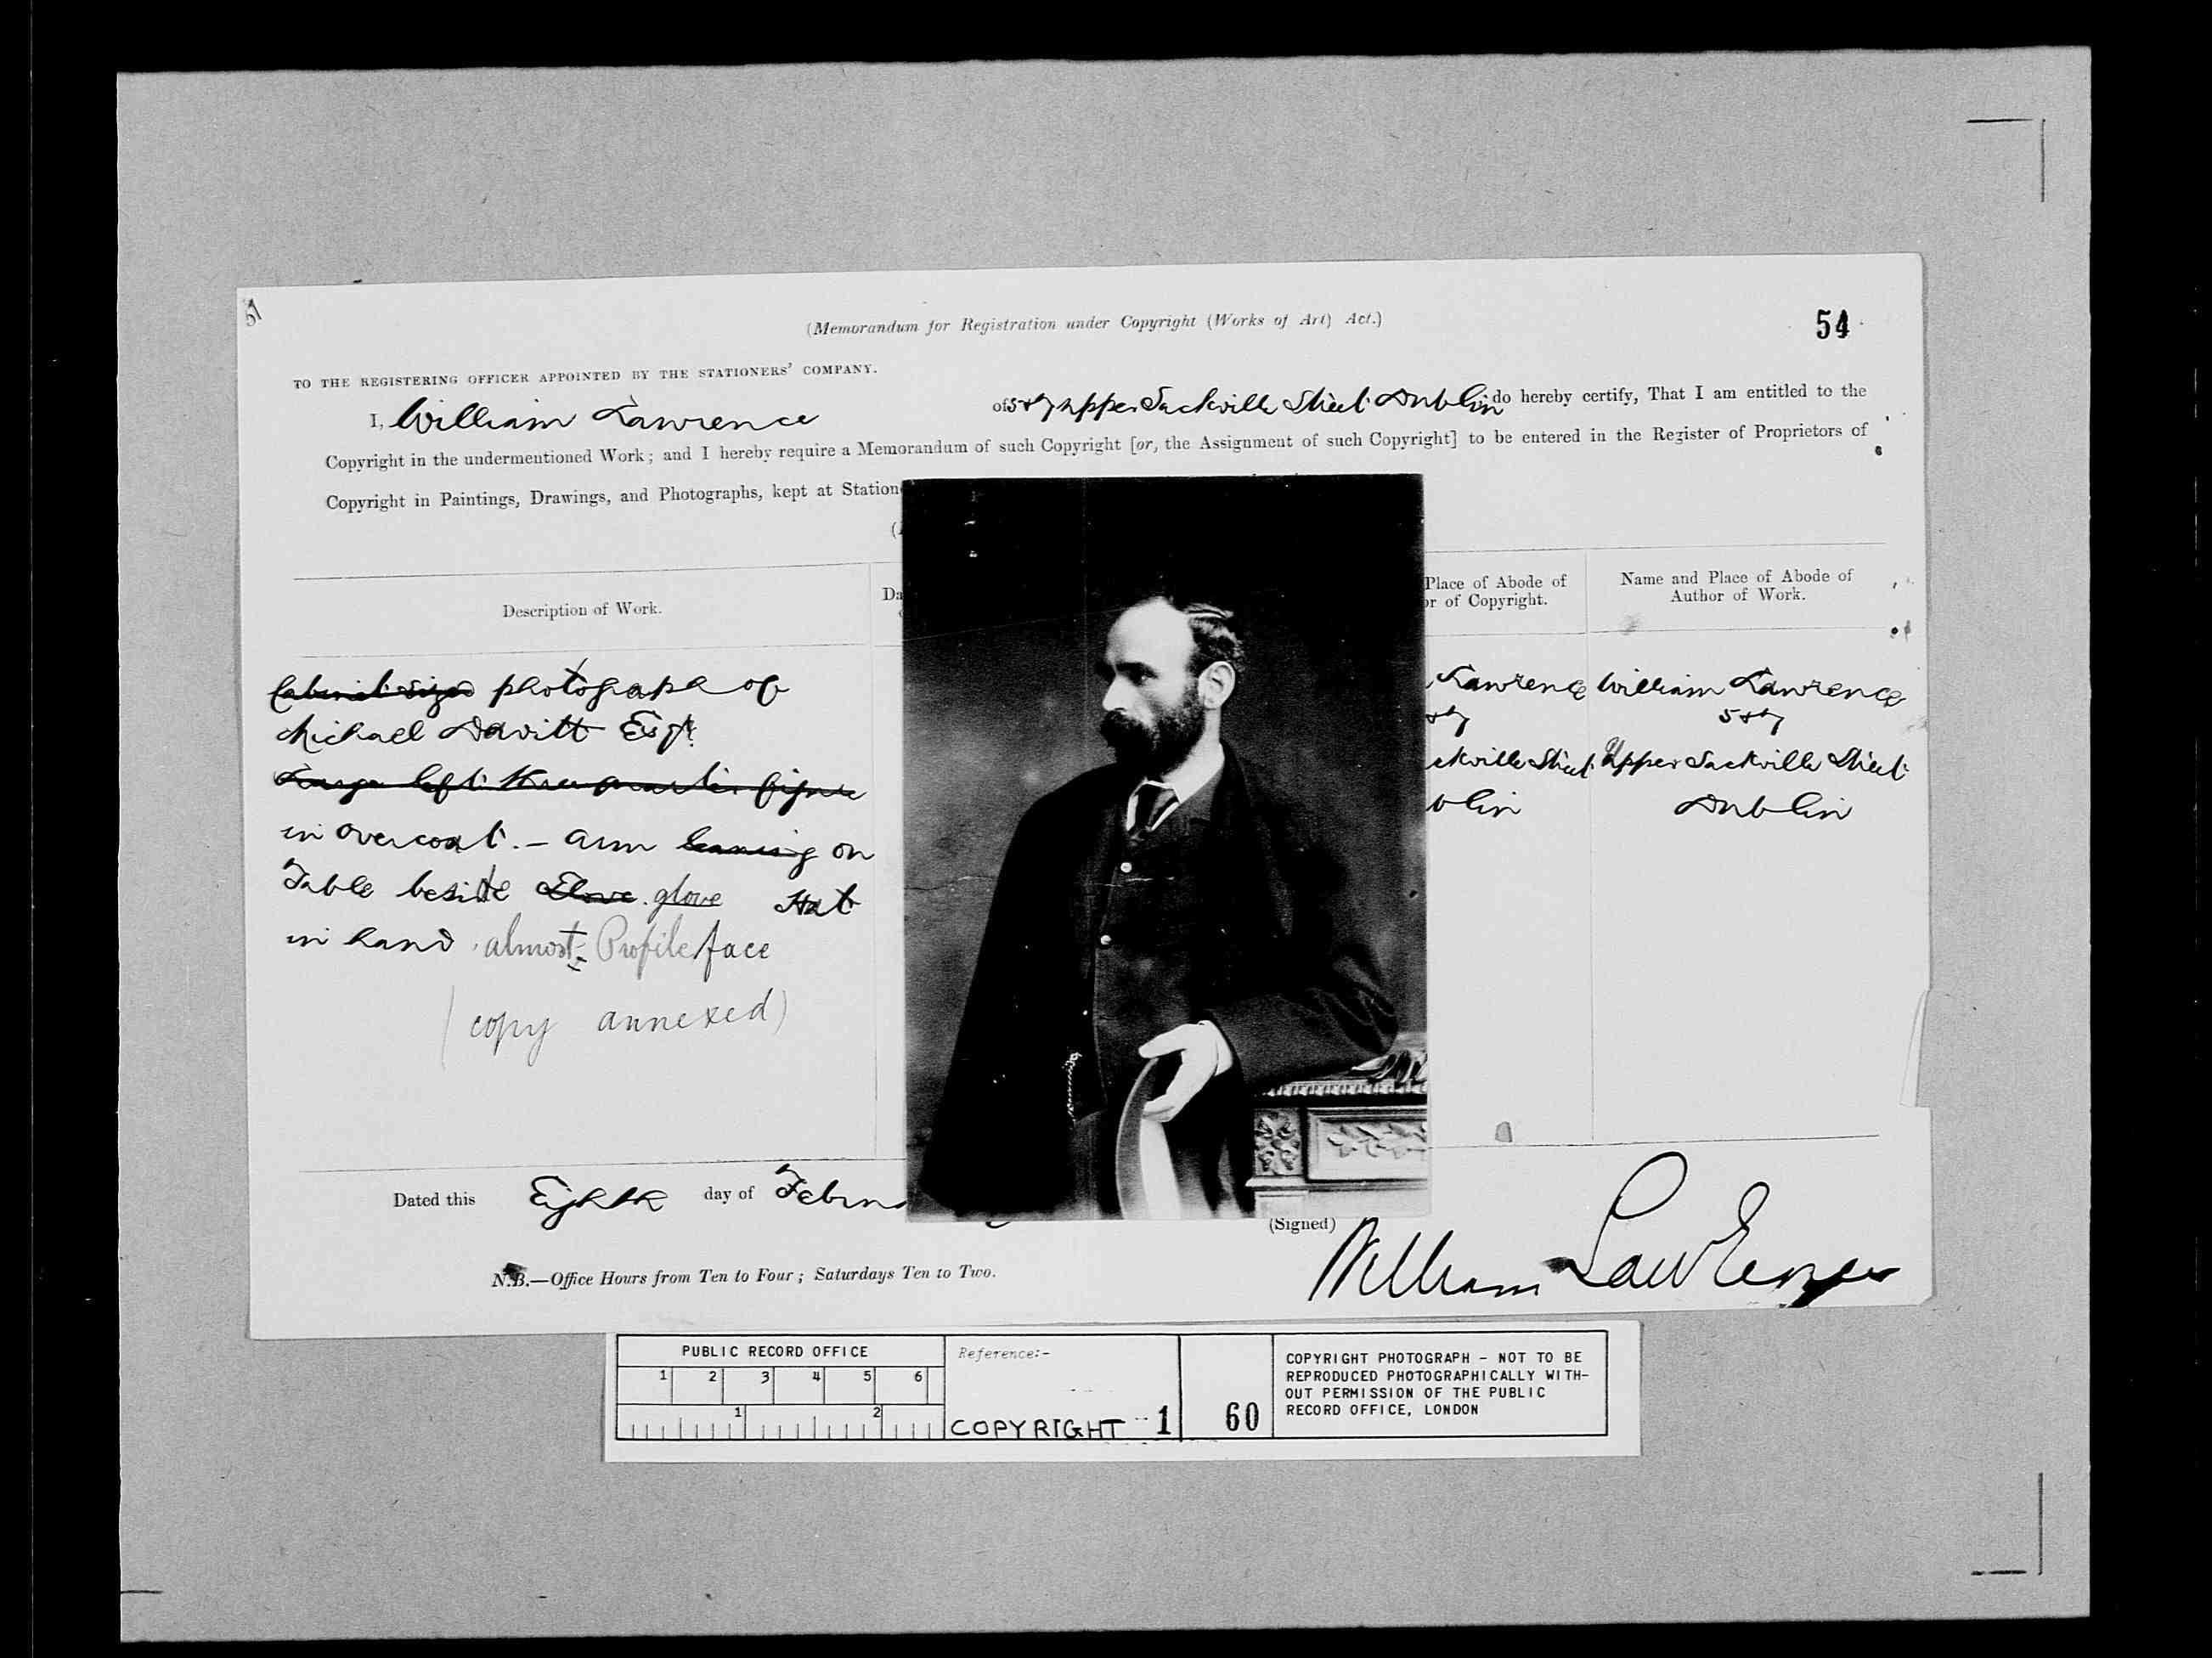 51
(Memorandum for Registration under Copyright (Works of Art) Act.)
54
TO THE REGISTERING OFFICER APPOINTED BY THE STATIONERS' COMPANY.
I, William Lawrence of 5 & 7 Upper Sackville Street Dublin do hereby certify, That I am entitled to the
Copyright in the undermentioned Work; and I hereby require a Memorandum of such Copyright [or, the Assignment of such Copyright] to be entered in the Register of Proprietors of
Copyright in Paintings, Drawings, and Photographs, kept at Station
Description of Work.
Da
Place of Abode of
or of Copyright.
Name and Place of Abode of
Author of Work.
Cabinet size photograph of
Michael Davitt Esqr.
Large left three quarter figure
in overcoat. – arm leaning on
Table beside Glove glove Hat
in hand almost Profile face
(copy annexed)
Lawrence
& 7
ckville Street
blin
William Lawrence
5 & 7
Upper Sackville Street
Dublin
Dated this Eighth day of Febru
(Signed)
William Lawrence
N.B.—Office Hours from Ten to Four; Saturdays Ten to Two.
PUBLIC RECORD OFFICE
1 2 3 4 5 6
1 2
Reference:-
COPYRIGHT 1 60
COPYRIGHT PHOTOGRAPH - NOT TO BE
REPRODUCED PHOTOGRAPHICALLY WITH-
OUT PERMISSION OF THE PUBLIC
RECORD OFFICE, LONDON